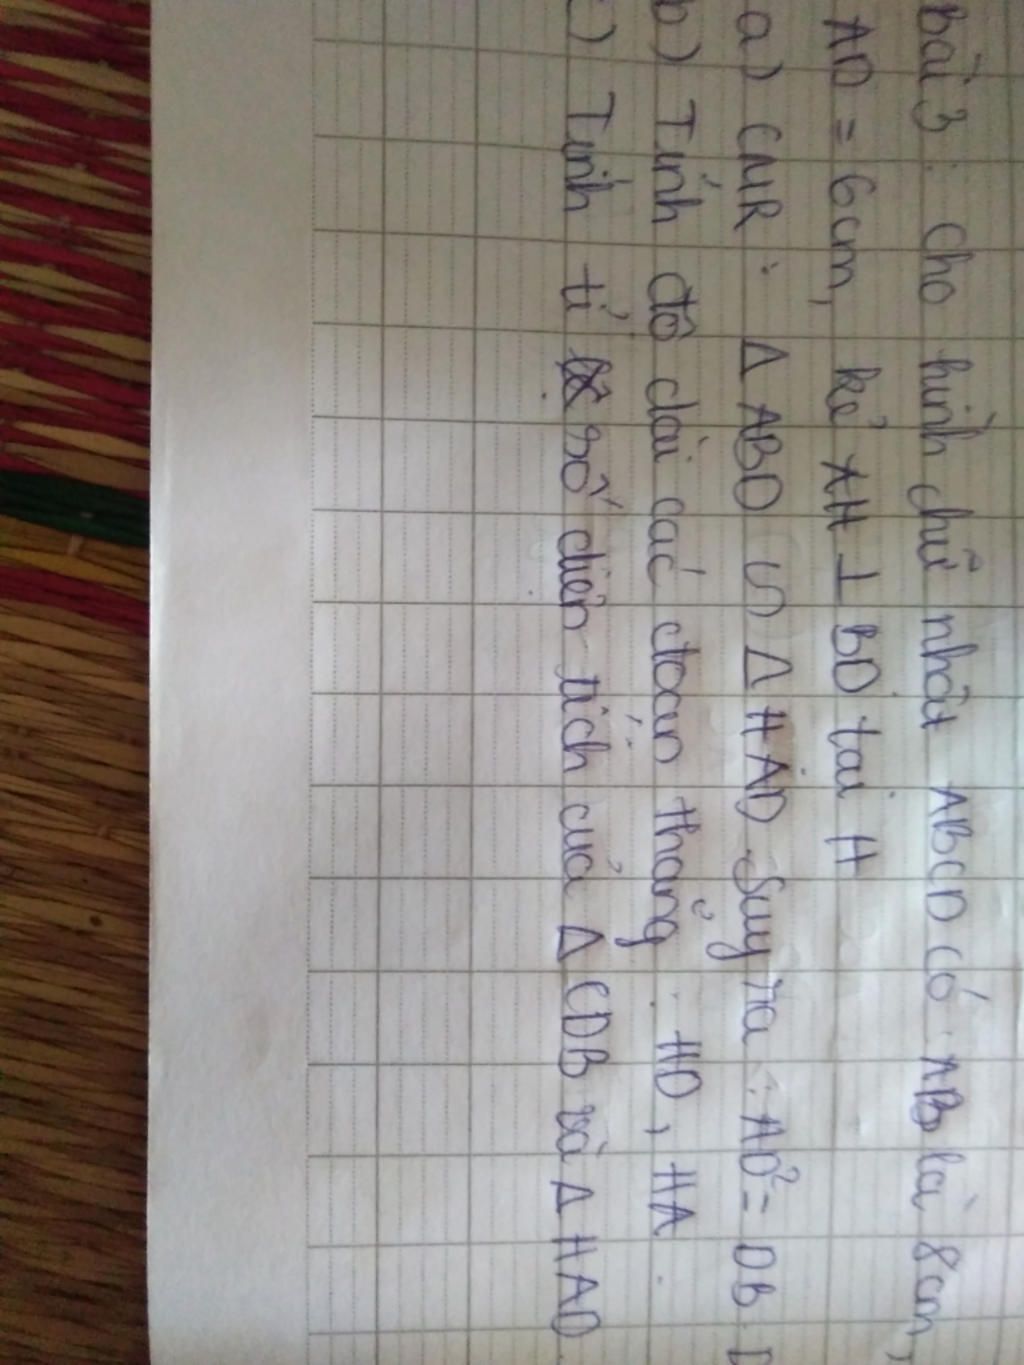 bài 3: cho hình chữ nhật ABCD có AB là 8cm,
AD = 6cm, kẻ AH ⊥ BD tại H
a) CMR: Δ ABD ∽ Δ HAD. Suy ra: AD² = DB.D
b) Tính độ dài các đoạn thẳng HD, HA.
c) Tính tỉ số diện tích của Δ CDB và Δ HAD.